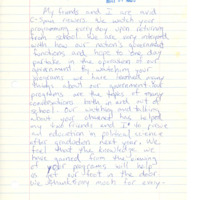 My friends and I are avid
C-Span viewers. We watch your
programming every day upon returning
from school. We are very interested
with how our nation's government
functions and hope to one day
partake in the operation of our
government. By watching your
programs we have learned many
things about our government. Your
programs are the topics of many
conversations both in and out of
school. Our watching and talking
about your channel has helped
my two friends and I to pursue
out education in political science
after graduation next year. We
feel that this knowledge we
have gained from the viewing
of your programs will help
us get our foot in the door.
We thank you much for every-